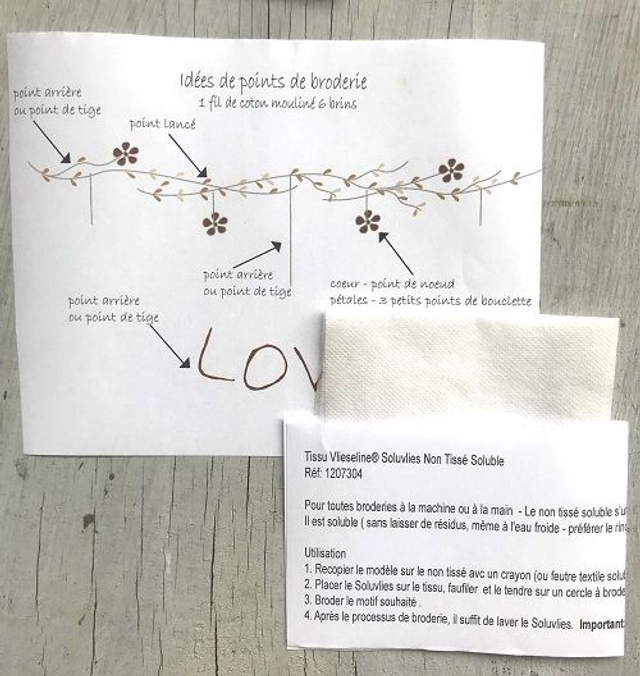 Idées de points de broderie
1 fil de coton mouliné 6 brins
point arrière
ou point de tige
point lancé
point arrière
ou point de tige
coeur - point de noeud
pétales - 3 petits points de bouclette
point arrière
ou point de tige
LOV
Tissu Vlieseline® Soluvlies Non Tissé Soluble
Réf: 1207304
Pour toutes broderies à la machine ou à la main - Le non tissé soluble s'u
Il est soluble ( sans laisser de résidus, même à l'eau froide - préférer le rin
Utilisation
1. Recopier le modèle sur le non tissé avc un crayon (ou feutre textile solu
2. Placer le Soluvlies sur le tissu, faufiler et le tendre sur un cercle à brode
3. Broder le motif souhaité .
4. Après le processus de broderie, il suffit de laver le Soluvlies. Important